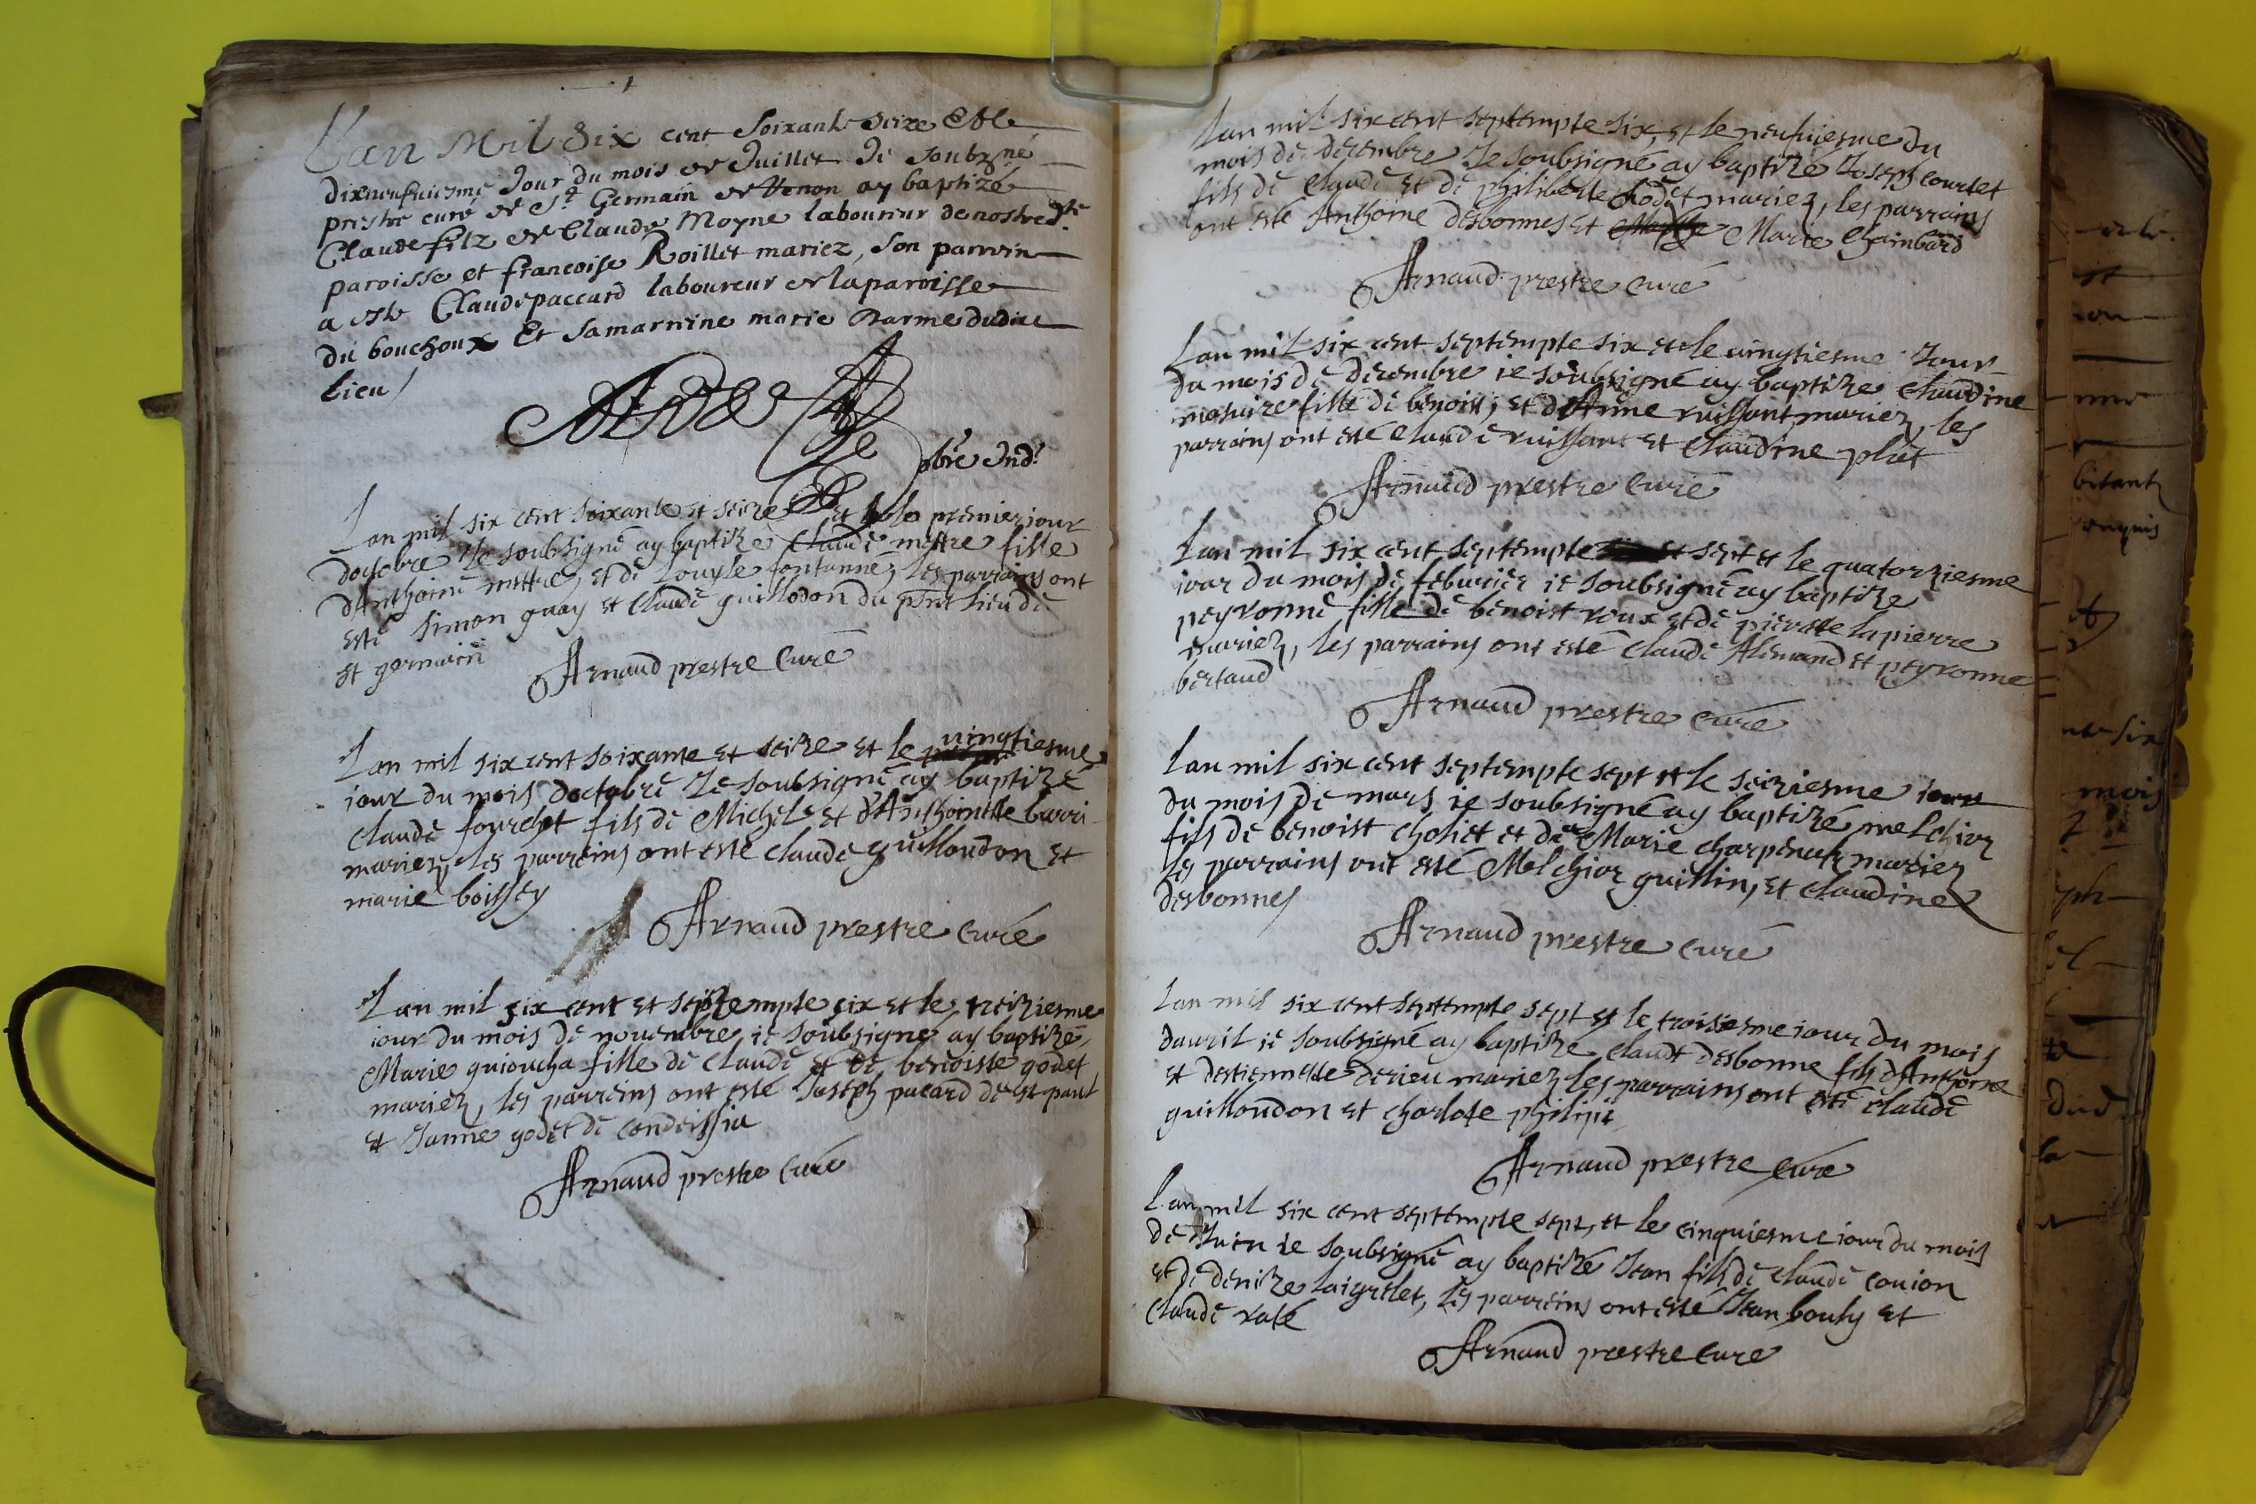 L'an Mil Six cent Soixante Seize Et le
dixneufuiesme Jour du mois de Juillet Je Soubzne
prestre curé de St Germain de Renon ay baptizé
Claude filz de Claude Moyne laboureur de nostre dte
paroisse et francoise Roillet mariez, Son parrein
a este Claude paccard laboureur de la paroisse
du bouchoux Et Sa marrine marie Darme dudict
lieu
pbre Ind.
Lan mil six cent soixante et seize et le premier jour
doctobre Je soubsigné ay baptize Claude mettre fille
d'Anthoine mettre, et de Louyse fontanne, les parrains ont
esté simon guay et Claude guillodon du pnt lieu de
st germain
Arnaud prestre Curé
Lan mil six cent soixante et seize et le vingtiesme
jour du mois doctobre Je soubsigné ay baptizé
Claude fourchet fils de Michel et d'Anthoinette burri
mariez, les parreins ont esté Claude guilloudon et
marie boissey
Arnaud prestre Curé
Lan mil six cent et septempte six et le treiziesme
iour du mois de nouembre ie soubsigné ay baptizé
Marie guioucha fille de Claude et de benoiste godet
mariez, les parreins ont esté Joseph pacard de st paul
et Janne godet de condeissia
Arnaud prestre Curé
Lan mil six cent septempte six, et le neufuiesme du
mois de decembre Je soubsigné ay baptize Joseph courtet
fils de Claude et de philiberte godet mariez, les parrains
ont esté Anthoine desbonnes et Marie Chambard
Arnaud prestre Curé
Lan mil six cent septempte six et le vingtiesme Jour
du mois de decembre ie soubsigné ay baptize Claudine
mesuire fille de benoist, et d'Anne ruissant mariez, les
parrains ont esté Claude ruissant et Claudine plut
Arnaud prestre Curé
Lan mil six cent septempte et sept et le quatorziesme
iour du mois de feburier ie soubsigné ay baptize
peyronne fille de benoist roux et de pierette lapierre
mariez, les parrains ont esté Claude Alemand et peyronne
bertaud
Arnaud prestre Curé
Lan mil six cent septempte sept et le seiziesme iour
du mois de mars ie soubsigné ay baptizé melchior
fils de benoist choliet et de Marie charpenet mariez
les parrains ont esté Melchior guillin, et Claudine
desbonnes
Arnaud prestre Curé
Lan mil six cent septempte sept et le troisiesme iour du mois
dauril ie soubsigné ay baptizé Claude desbonne fils d'Anthoine
et destiennette derieu mariez les parrains ont esté Claude
guilloudon et charlote philipe
Arnaud prestre Curé
Lan mil six cent septempte sept, et le cinquiesme iour du mois
de Juin ie soubsigné ay baptizé Jean fils de Claude couion
et de denize laigrelet, les parreins ont esté Jean bouly et
Claude raté
Arnaud prestre Curé